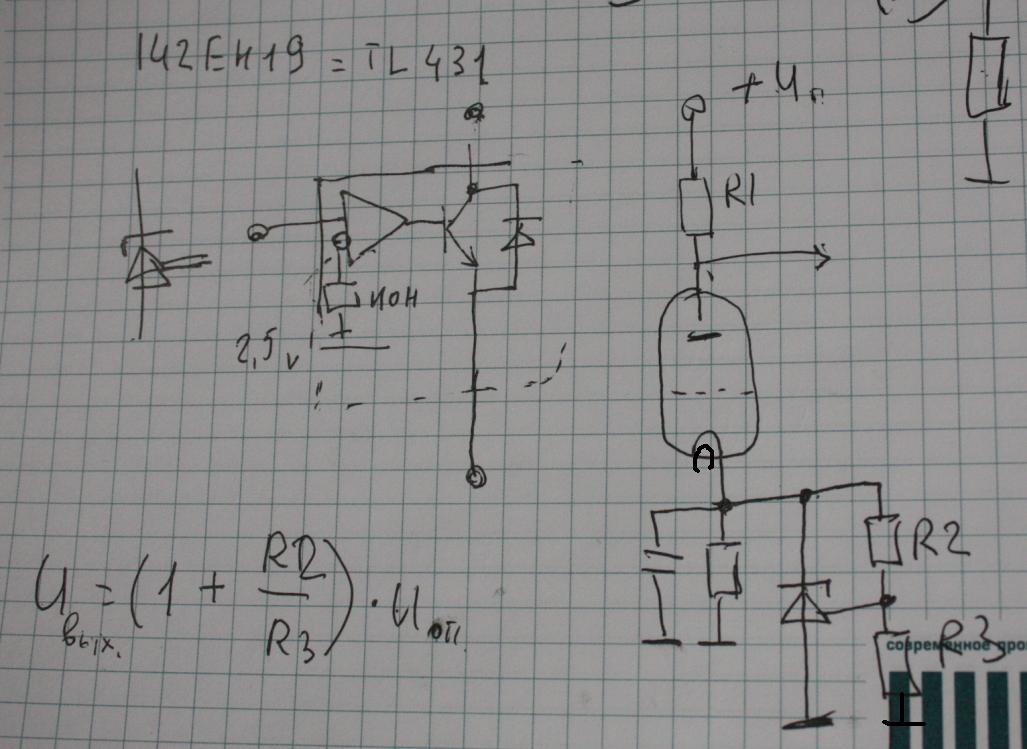 142ЕН19 = TL431
+Uп
R1
ИОН
2,5 v
R2
Uвых. = (1 + R2/R3) · Uоп.
R3
современное про